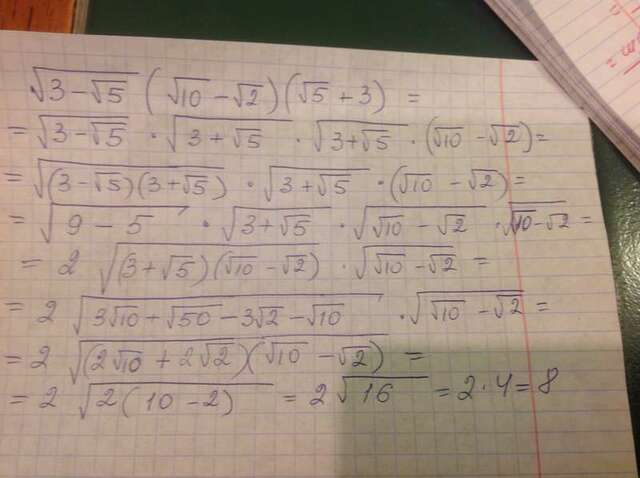 √(3-√5) (√10 -√2)(√5 + 3) =
= √(3-√5) · √(3+√5) · √(3+√5) · (√10 -√2)=
= √((3-√5)(3+√5)) · √(3+√5) · (√10 -√2)=
= √(9-5) · √(3+√5) · √(√10 -√2) · √(√10-√2) =
= 2 √((3+√5)(√10 -√2)) · √(√10 -√2) =
= 2 √(3√10+√50-3√2-√10) · √(√10 -√2) =
= 2 √((2√10 + 2√2)(√10 -√2)) =
= 2 √(2(10-2)) = 2√16 = 2·4=8